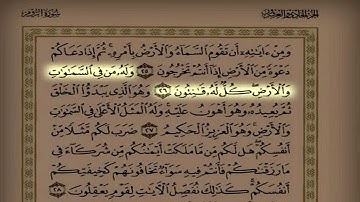 الجزء الحادي والعشرون سورة الروم
وَمِنْ ءَايَٰتِهِۦٓ أَن تَقُومَ ٱلسَّمَآءُ وَٱلْأَرْضُ بِأَمْرِهِۦ ثُمَّ إِذَا دَعَاكُمْ
دَعْوَةً مِّنَ ٱلْأَرْضِ إِذَآ أَنتُمْ تَخْرُجُونَ ٢٥ وَلَهُۥ مَن فِى ٱلسَّمَٰوَٰتِ
وَٱلْأَرْضِ كُلٌّ لَّهُۥ قَٰنِتُونَ ٢٦ وَهُوَ ٱلَّذِى يَبْدَؤُا۟ ٱلْخَلْقَ
ثُمَّ يُعِيدُهُۥ وَهُوَ أَهْوَنُ عَلَيْهِ وَلَهُ ٱلْمَثَلُ ٱلْأَعْلَىٰ فِى ٱلسَّمَٰوَٰتِ
وَٱلْأَرْضِ وَهُوَ ٱلْعَزِيزُ ٱلْحَكِيمُ ٢٧ ضَرَبَ لَكُم مَّثَلًا مِّنْ
أَنفُسِكُمْ هَل لَّكُم مِّن مَّا مَلَكَتْ أَيْمَٰنُكُم مِّن شُرَكَآءَ فِى
مَا رَزَقْنَٰكُمْ فَأَنتُمْ فِيهِ سَوَآءٌ تَخَافُونَهُمْ كَخِيفَتِكُمْ
أَنفُسَكُمْ كَذَٰلِكَ نُفَصِّلُ ٱلْءَايَٰتِ لِقَوْمٍ يَعْقِلُونَ ٢٨